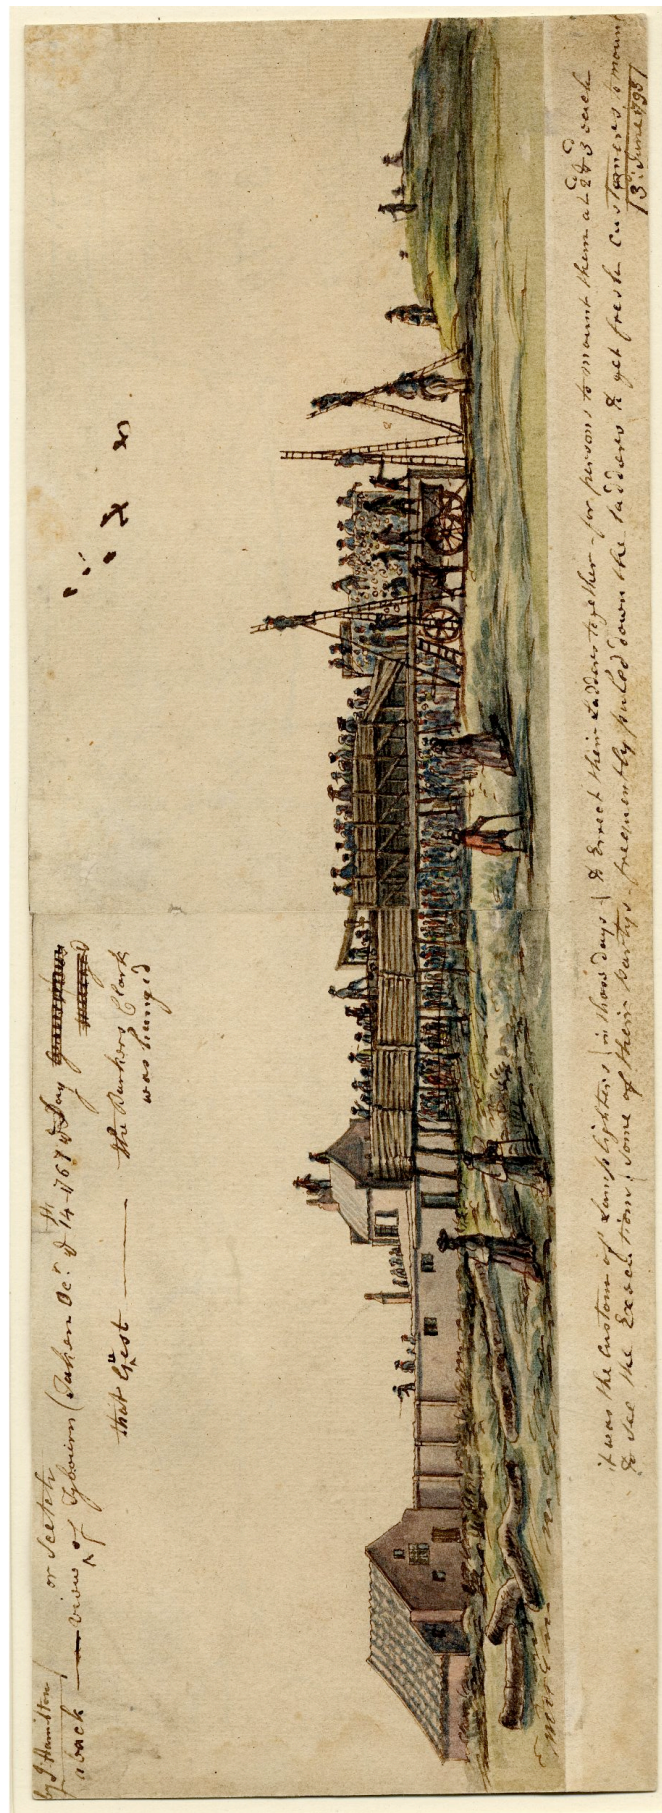 by J Hamilton
or Scetch
a back view of Tybourn (Taken Ocr. ye 14th 1767 ye Day
that Guest — the Bankers Clark
was hunged
it was the Custom of Lamplighters in those days to Errect their Ladders together for persons to mount them at 2d & 3d each
to see the Execution, Some of their partys frequently puled down the ladders to get fresh Customers to mount